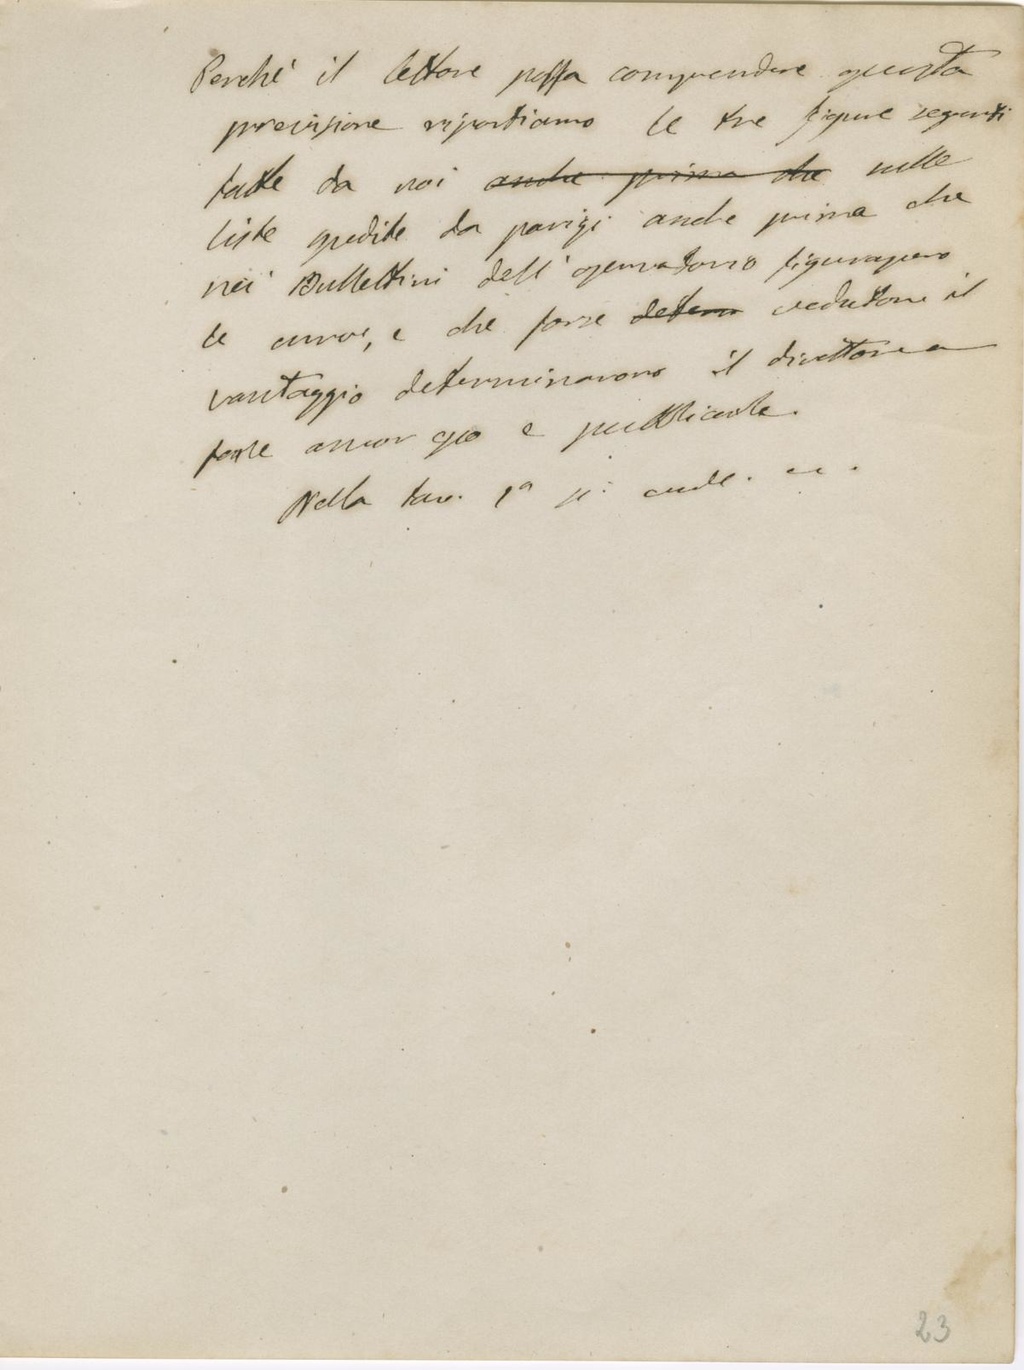 Perché il lettore possa comprendere questa
precisione riportiamo le tre figure seguenti
fatte da noi anche prima che nelle
liste spedite da parigi anche prima che
nei Bullettini dell'osservatorio figurassero
le curve, e che forse determ vedutone il
vantaggio determinarono il direttore a
farle ancor esso e pubblicarle.
Nella tav. 1ª si vede.
23